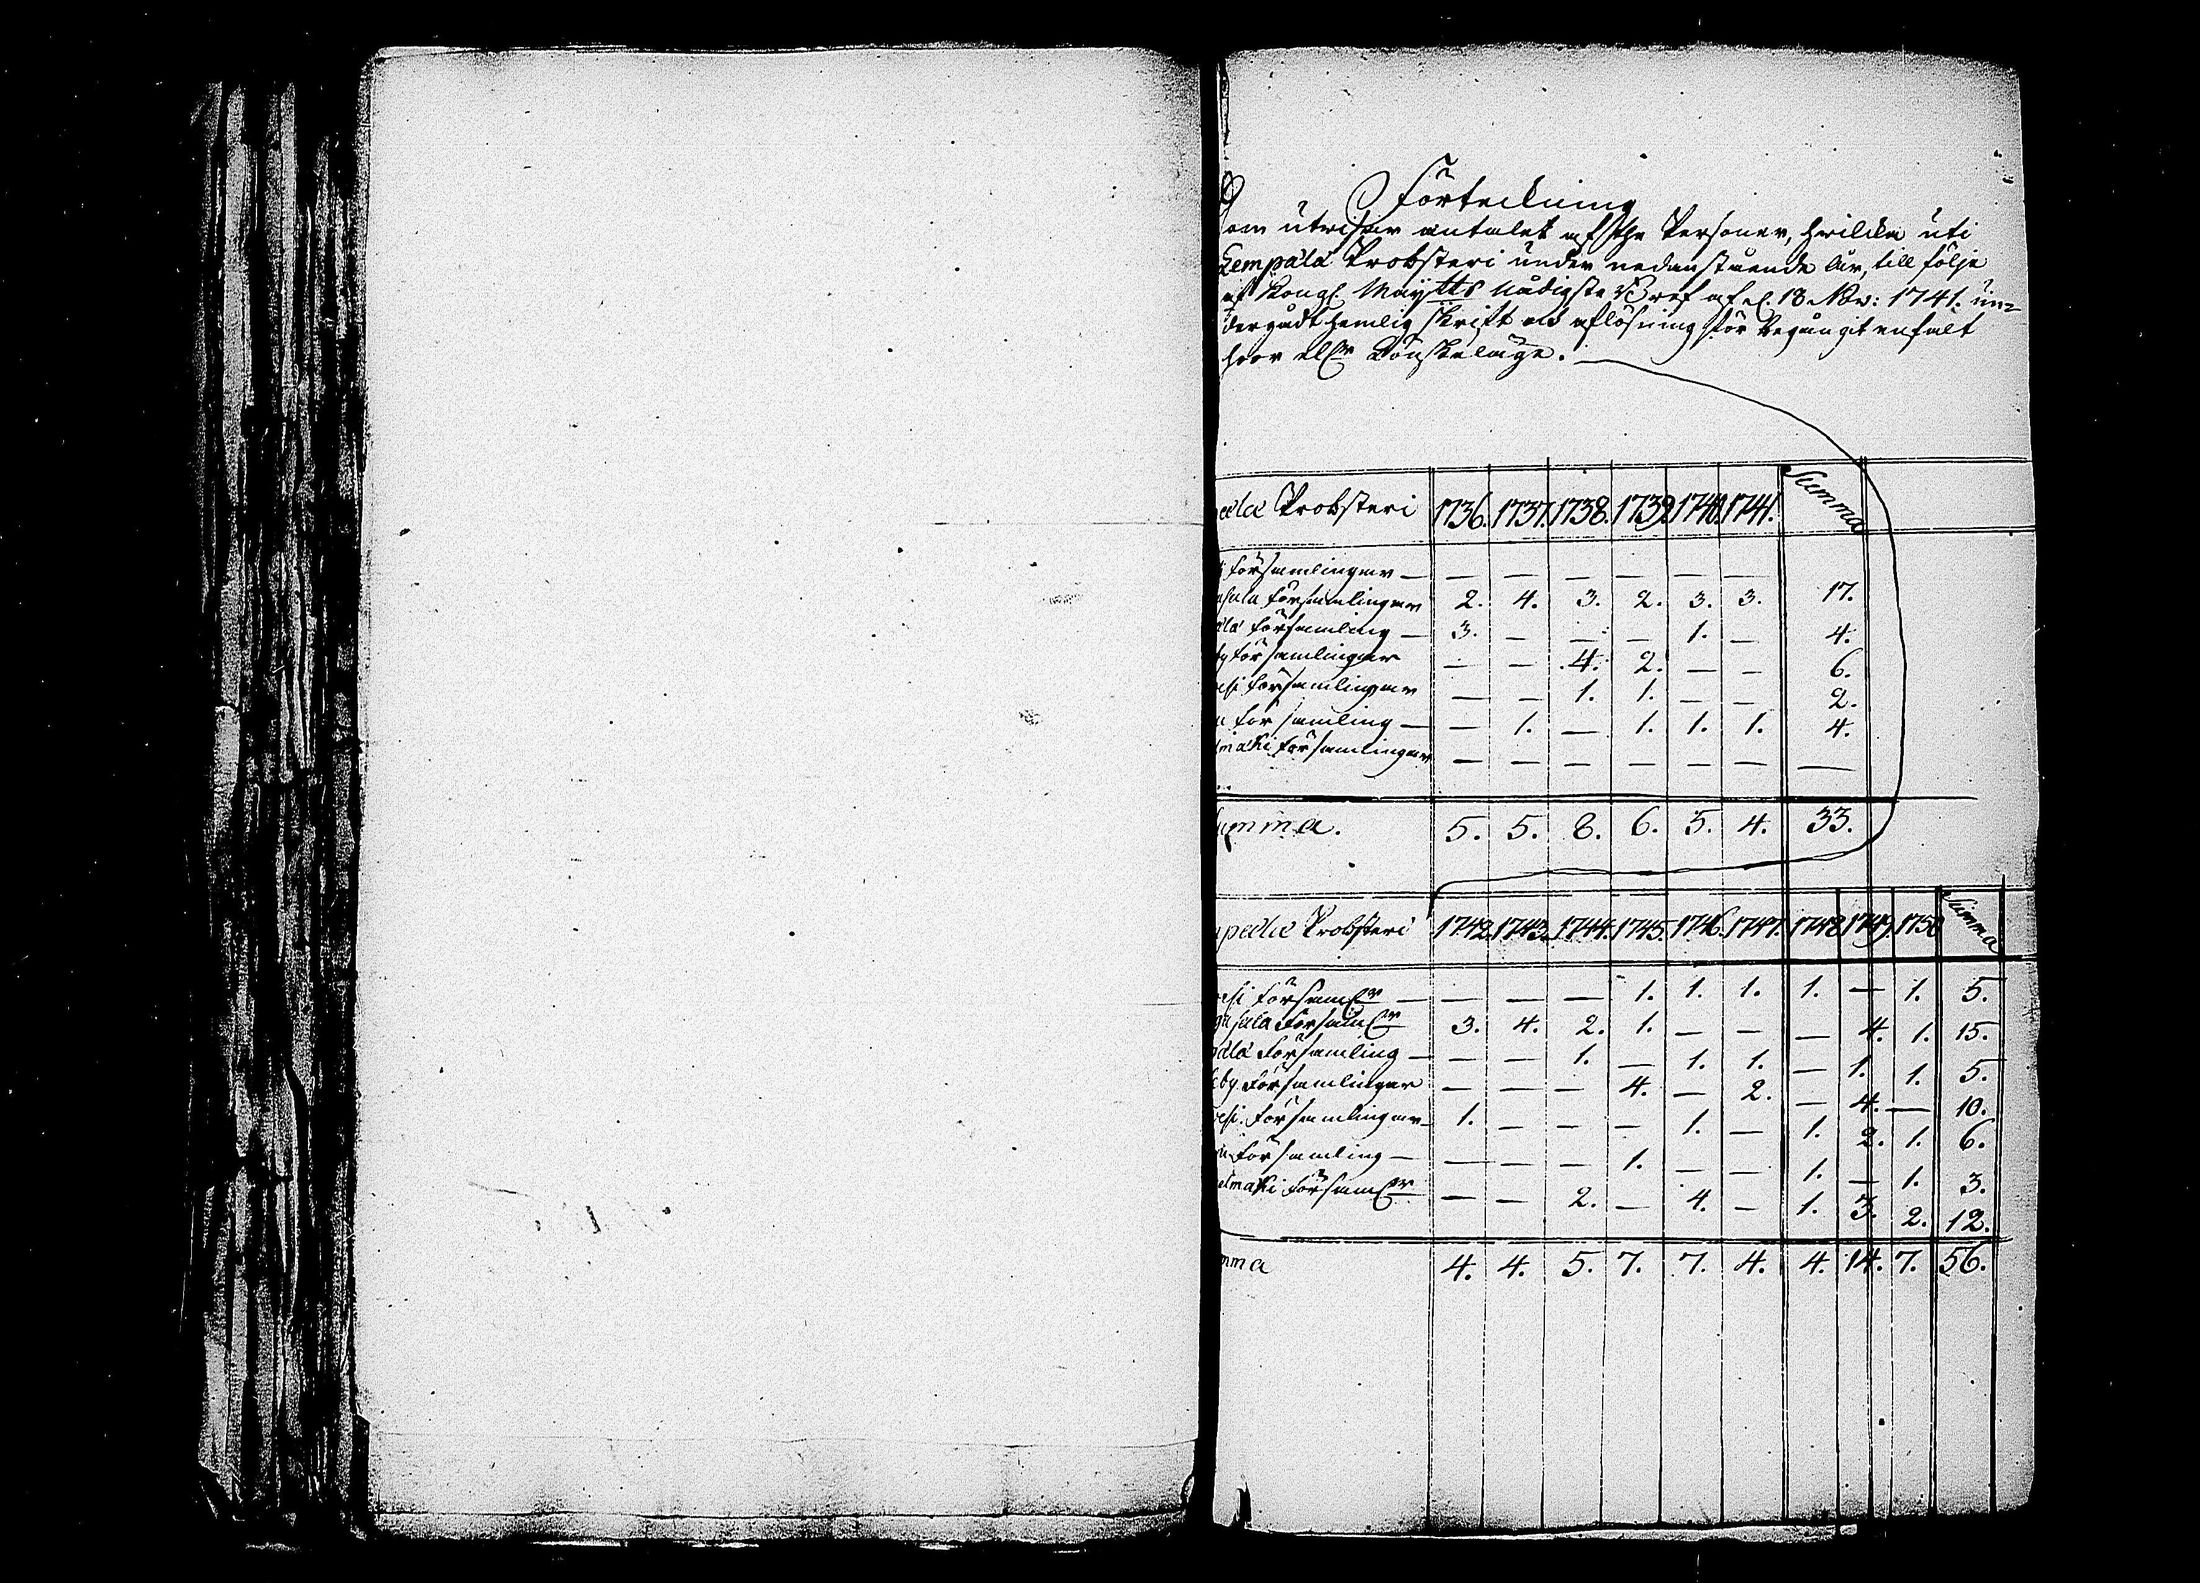 Förteckning
Som utwisar antalet af the Personer, hwilcka uti
Lempälä Probsteri under nedanstående åhr, till följe
af Kongl. Maytts Nådigste Bref af d. 18 Nov: 1741. un=
dergådt hemlig skrift och aflösning för begångit enfalt
hoor eller Lönskeläge.
älä Probsteri 1736. 1737. 1738. 1739. 1740. 1741. Summa
i församlingar — — — — — — —
gasala församlingar 2. 4. 3. 2. 3. 3. 17.
älä församling — 3. — — — 1. — 4.
by församlingar — — 4. 2. — — 6.
wesi församlingar — — 1. 1. — — 2.
a församling — — 1. — 1. 1. 1. 4.
lmäki församlingar — — — — — — —
umma. 5. 5. 8. 6. 5. 4. 33.
mpälä Probsteri 1742. 1743. 1744. 1745. 1746. 1747. 1748. 1749. 1750 Summa
wesi församlr — — — — 1. 1. 1. 1. — 1. 5.
ngasala församlr 3. 4. 2. 1. — — — 4. 1. 15.
pälä församling — — — 1. — 1. 1. — 1. 1. 5.
keby församlingar — — — 4. — 2. — 4. — 10.
wesi församlingar 1. — — — 1. — 1. 2. 1. 6.
a församling — — — — 1. — — 1. — 1. 3.
elmäki församlr — — 2. — 4. — 1. 3. 2. 12.
mma 4. 4. 5. 7. 7. 4. 4. 14. 7. 56.